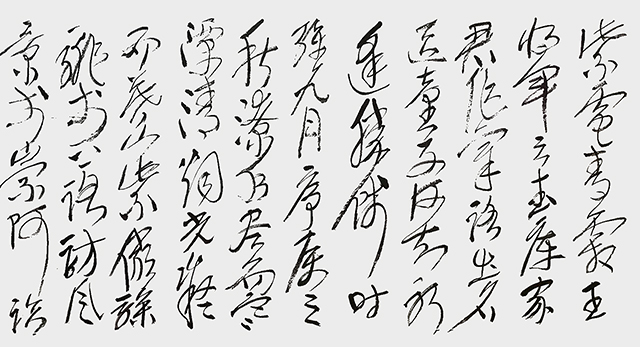 紫電青霜王
将軍之武庫家
君作宰路出名
區童子何知躬
逢勝餞时
維九月序属三
秋潦水尽而寒
潭清烟光凝
而暮山紫儼驂
騑於上路訪风
景於崇阿臨